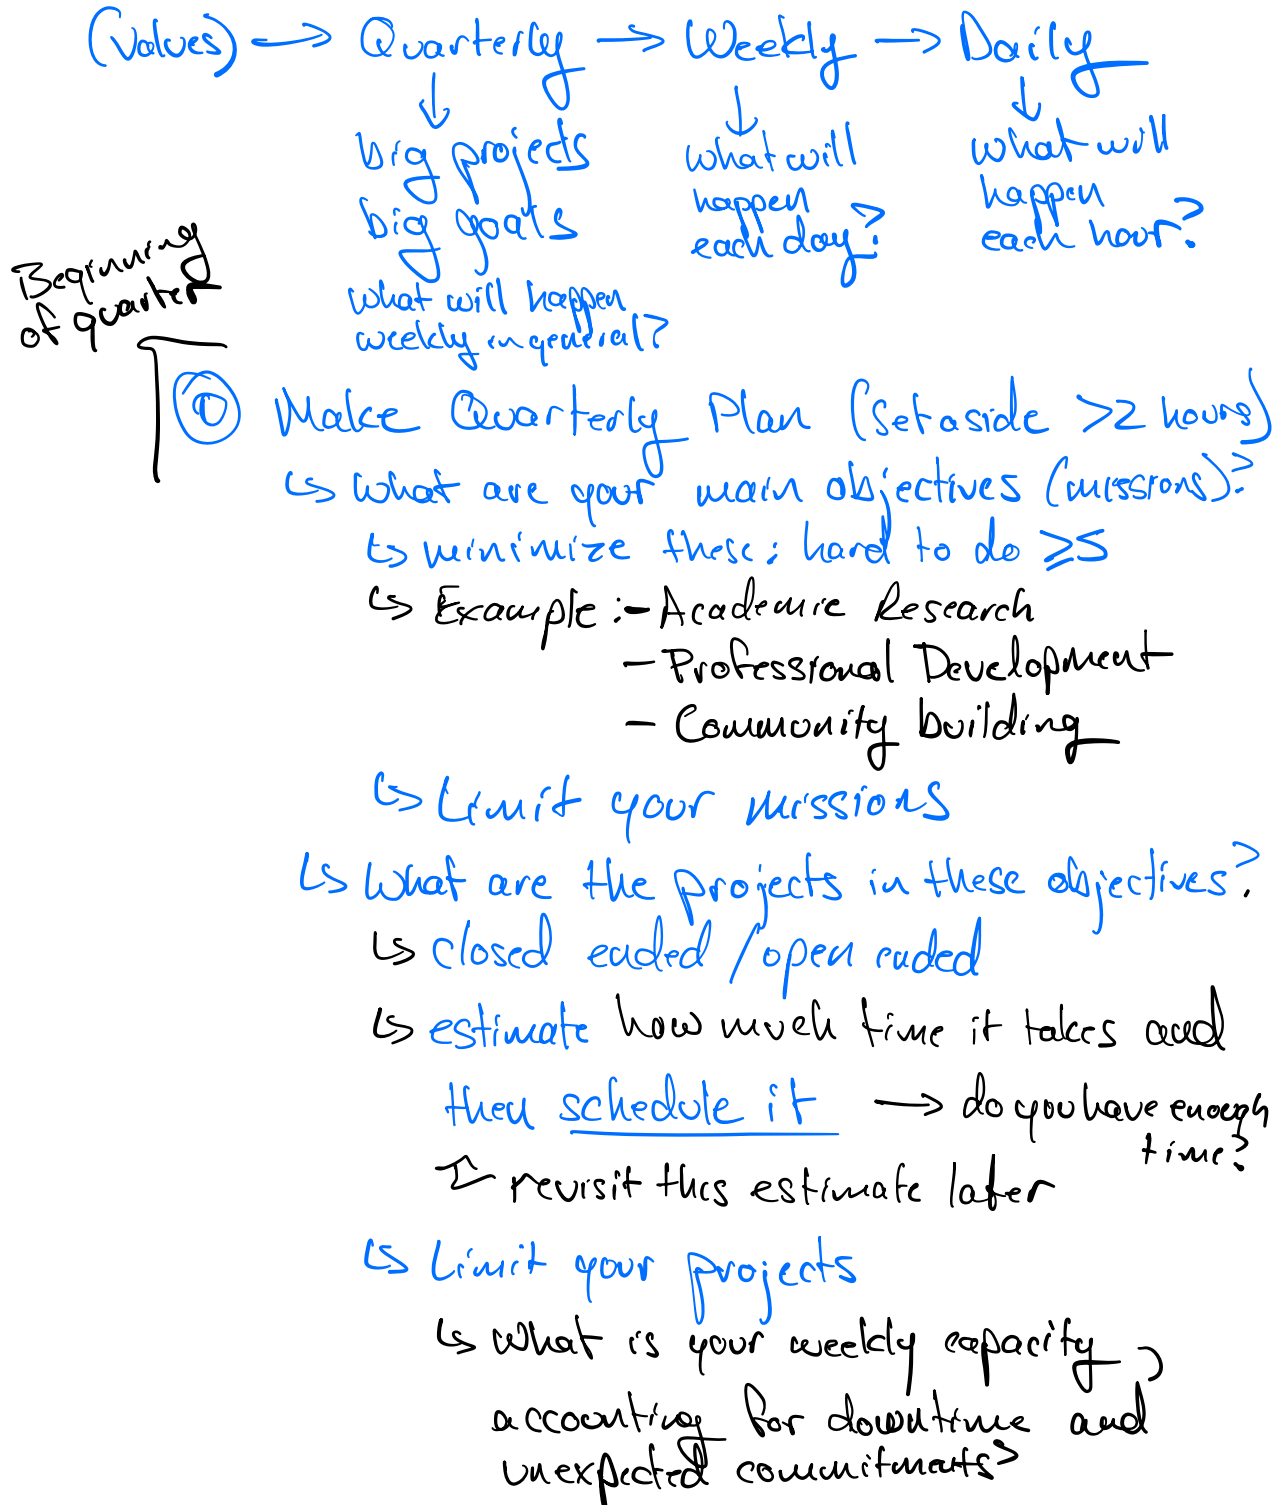 (Values) → Quarterly → Weekly → Daily
↓ ↓ ↓
big projects
big goals
what will happen
weekly in general?
what will
happen
each day?
what will
happen
each hour?
Beginning
of quarter
① Make Quarterly Plan (Set aside >2 hours)
↳ What are your main objectives (missions)?
↳ minimize these: hard to do ≥5
↳ Example :- Academic Research
- Professional Development
- Community building
↳ Limit your missions
↳ What are the projects in these objectives?
↳ closed ended / open ended
↳ estimate how much time it takes and
then schedule it → do you have enough
time?
revisit this estimate later
↳ Limit your projects
↳ What is your weekly capacity,
accounting for downtime and
unexpected commitments?